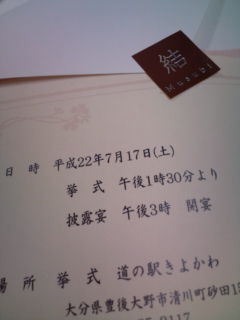 結
Musubi
日 時 平成22年7月17日(土)
挙 式 午後1時30分より
披露宴 午後3時 開宴
場 所 挙 式 道の駅きよかわ
大分県豊後大野市清川町砂田1